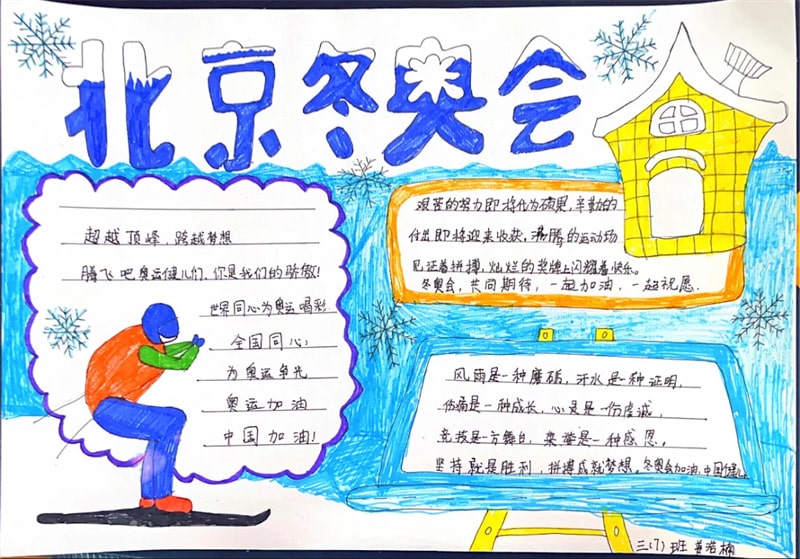 北京冬奥会
超越顶峰,跨越梦想
腾飞吧奥运健儿们,你是我们的骄傲!
世界同心为奥运喝彩
全国同心:
为奥运争光
奥运加油
中国加油!
艰苦的努力即将化为硕果,辛勤的
付出即将迎来收获,沸腾的运动场
见证着拼搏,灿烂的奖牌上闪耀着快乐。
冬奥会,共同期待,一起加油,一起祝愿.
风雨是一种磨砺,汗水是一种证明,
伤痛是一种成长,心灵是一份虔诚,
竞技是一方舞台,荣誉是一种感恩。
坚持就是胜利,拼搏成就梦想。冬奥会加油,中国健儿
三(7)班 姜浩楠